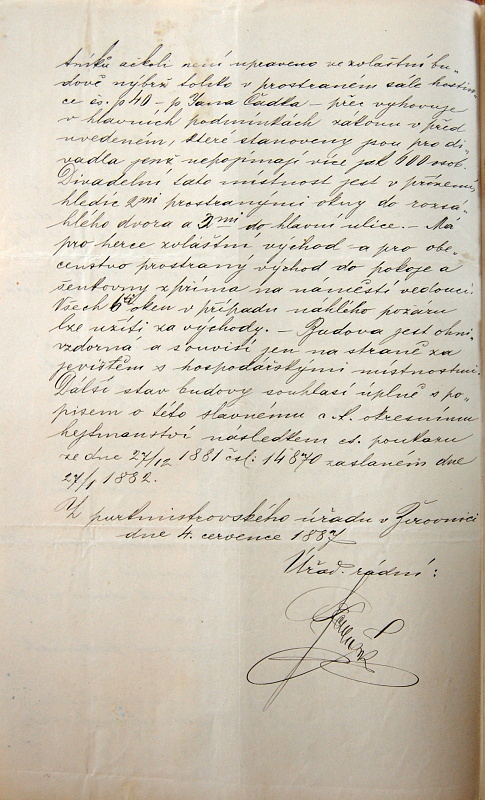 tníků ačkoli není upraveno ve zvláštní bu-
dově nýbrž toliko v prostraném sále hostin-
ce čs. p 40 – p Jana Čadka – přec vyhovuje
v hlavních podmínkách zákonu v před
uvedeném, které stanoveny jsou pro di-
vadla jenž nepojímají více jak 600 osob.
Divadelní tato místnost jest v přízemí,
hledíc 4mi prostranými okny do rozsá-
hlého dvora a 2mi do hlavní ulice. – Má
pro herce zvláštní východ – a pro obe-
censtvo prostraný východ do pokoje a
šenkovny zpříma na náměstí vedoucí.
Všech 6ti oken v případu náhlého požáru
lze užíti za východy. – Budova jest ohni-
vzdorná a souvisí jen na straně za
jevištěm s hospodářskými místnostmi.
Další stav budovy souhlasí úplně s po-
pisem o této slavnému c. k. okresnímu
hejtmanství následkem ct. poukazu
ze dne 27/12 1881 čsl: 14870 zaslaném dne
27/1 1882.
Z purkmistrovského úřadu v Žirovnici
dne 4. července 1887
Úřad. rádní: